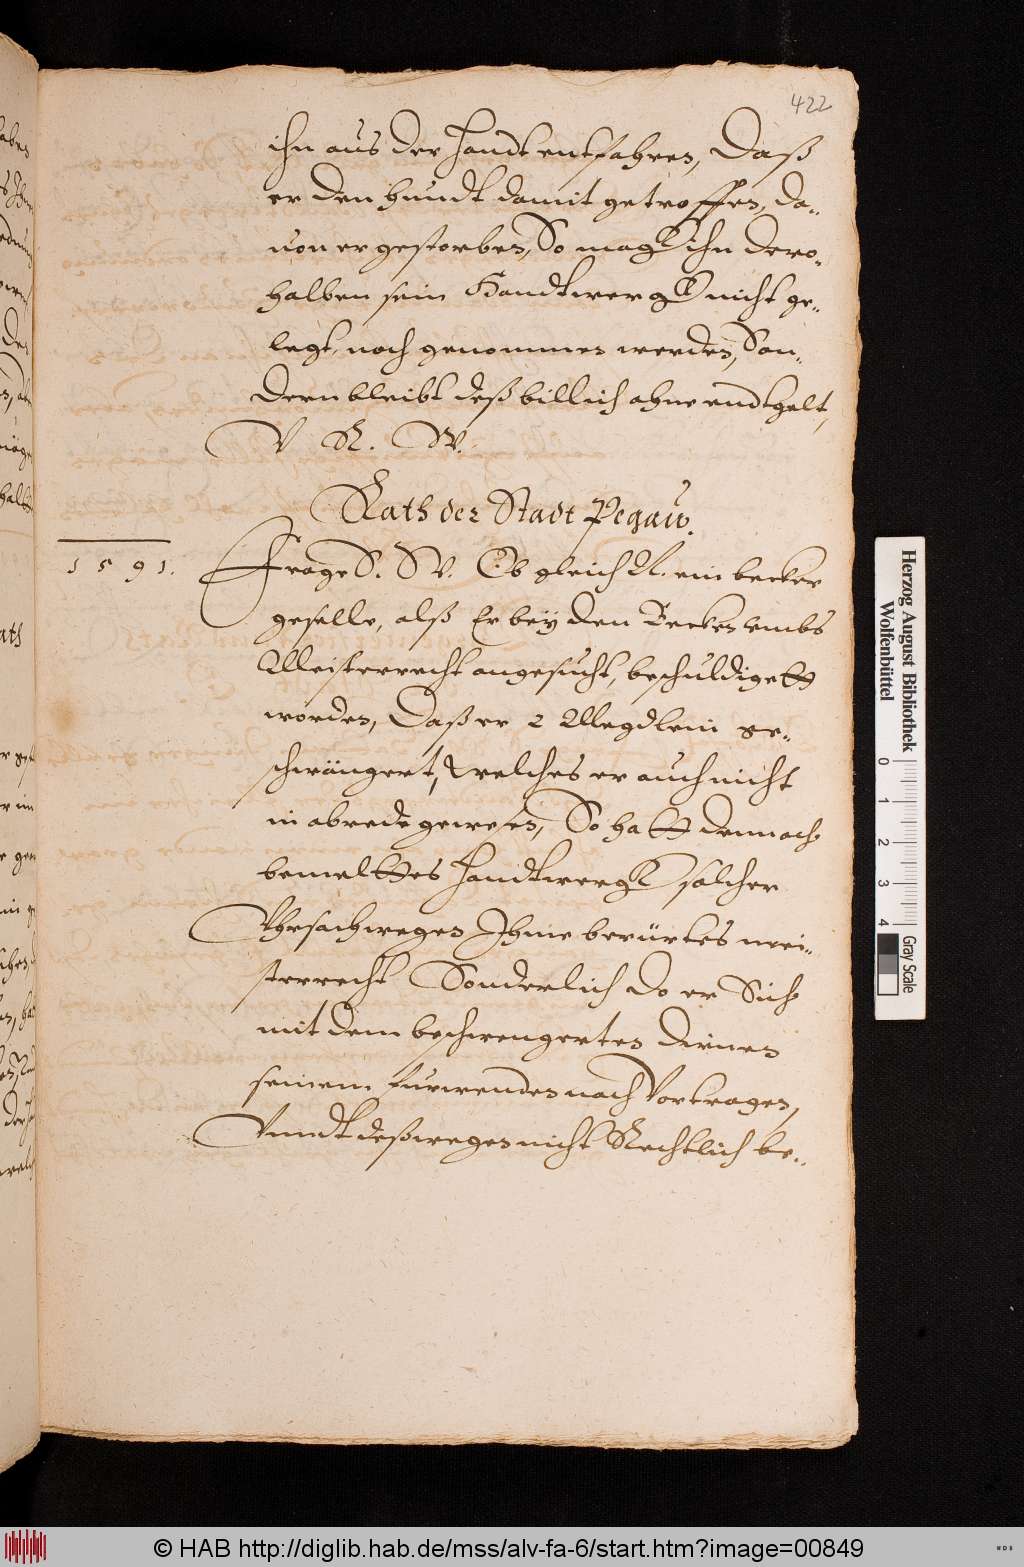 422
ihn aus der Handt entfahren, Daß
er den hundt damit getroffen, da-
uon er gestorben, So magk ihn dero-
halben sein Handtwergk nicht ge-
legt, noch genommen werden, Son-
dern bleibt deß billich ohne endtgelt,
V R. W.
Rath der Stadt Pegaw.
1591.
Frage S. W. Ob gleich N. ein becker
geselle, alß Er bey den Becken umbs
Meisterrecht angesucht, beschuldigett
worden, Daß er 2 Megdlein ge-
schwängert, welches er auch nicht
in abrede gewesen, So hatt dennoch
bemelttes Handtwergk solcher
Vhrsach wegen Ihme berürtes mei-
sterrecht Sonderlich do er Sich
mit dem beschwengerten dirnen
seinem furwenden nach Vortragen,
Vnndt deßwegen nicht Rechtlich be-
Herzog August Bibliothek
Wolfenbüttel
0 1 2 3 4
Gray Scale
© HAB http://diglib.hab.de/mss/alv-fa-6/start.htm?image=00849
WDB